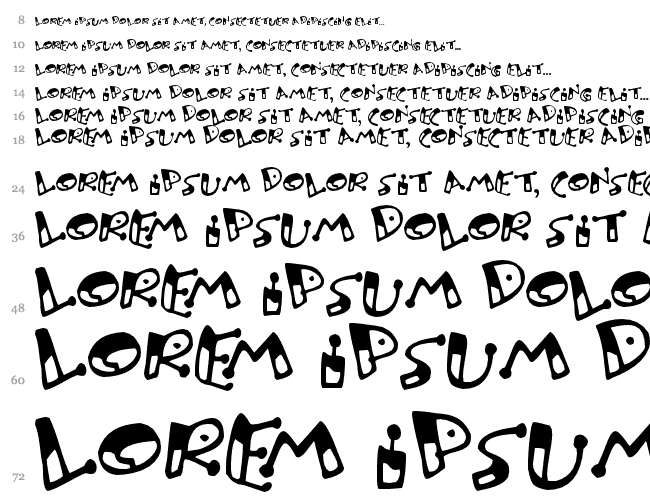 8 LOREM iPSUM DOLOR SiT AMET, CONSECTETUER ADiPiSCiNG ELiT...
10 LOREM iPSUM DOLOR SiT AMET, CONSECTETUER ADiPiSCiNG ELiT...
12 LOREM iPSUM DOLOR SiT AMET, CONSECTETUER ADiPiSCiNG ELiT...
14 LOREM iPSUM DOLOR SiT AMET, CONSECTETUER ADiPiSCiNG ELiT...
16 LOREM iPSUM DOLOR SiT AMET, CONSECTETUER ADiPiSCiNG
18 LOREM iPSUM DOLOR SiT AMET, CONSECTETUER ADiP
24 LOREM iPSUM DOLOR SiT AMET, CONSE
36 LOREM iPSUM DOLOR SiT
48 LOREM iPSUM DOLO
60 LOREM iPSUM D
72 LOREM iPSUM